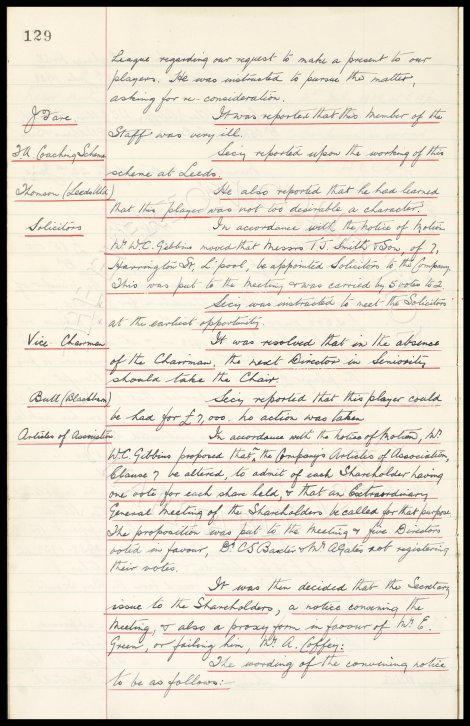 129
League regarding our request to make a present to our
players. He was instructed to pursue the matter,
asking for re-consideration.
J Fare. It was reported that this Member of the
Staff was very ill.
FA Coaching Scheme Secy reported upon the working of this
scheme at Leeds.
Thomson (Leeds Utd) He also reported that he had learned
that this player was not too desirable a character.
Solicitors In accordance with the Notice of Motion
Mr W.C. Gibbins moved that Messrs T.J. Smith & Son, of 7,
Harrington St, L'pool, be appointed Solicitors to the Company
This was put to the Meeting & was carried by 5 votes to 2
Secy was instructed to meet the Solicitors
at the earliest opportunity.
Vice-Chairman It was resolved that in the absence
of the Chairman, the next Director in Seniority
should take the Chair.
Butt (Blackburn) Secy reported that this player could
be had for £7,000. No action was taken
Articles of Association In accordance with the Notice of Motion, Mr
W.C. Gibbins proposed that, the Company's Articles of Association,
Clause 7 be altered, to admit of each Shareholder having
one vote for each share held, & that an Extraordinary
General Meeting of the Shareholders be called for that purpose
The proposition was put to the Meeting & five Directors
voted in favour, Dr C.S. Baxter & Mr A Gates not registering
their votes.
It was then decided that the Secretary
issue to the Shareholders, a notice convening the
Meeting, & also a proxy form in favour of Mr. E.
Green, or failing him, Mr. A. Coffey:
The wording of the convening notice
to be as follows:-